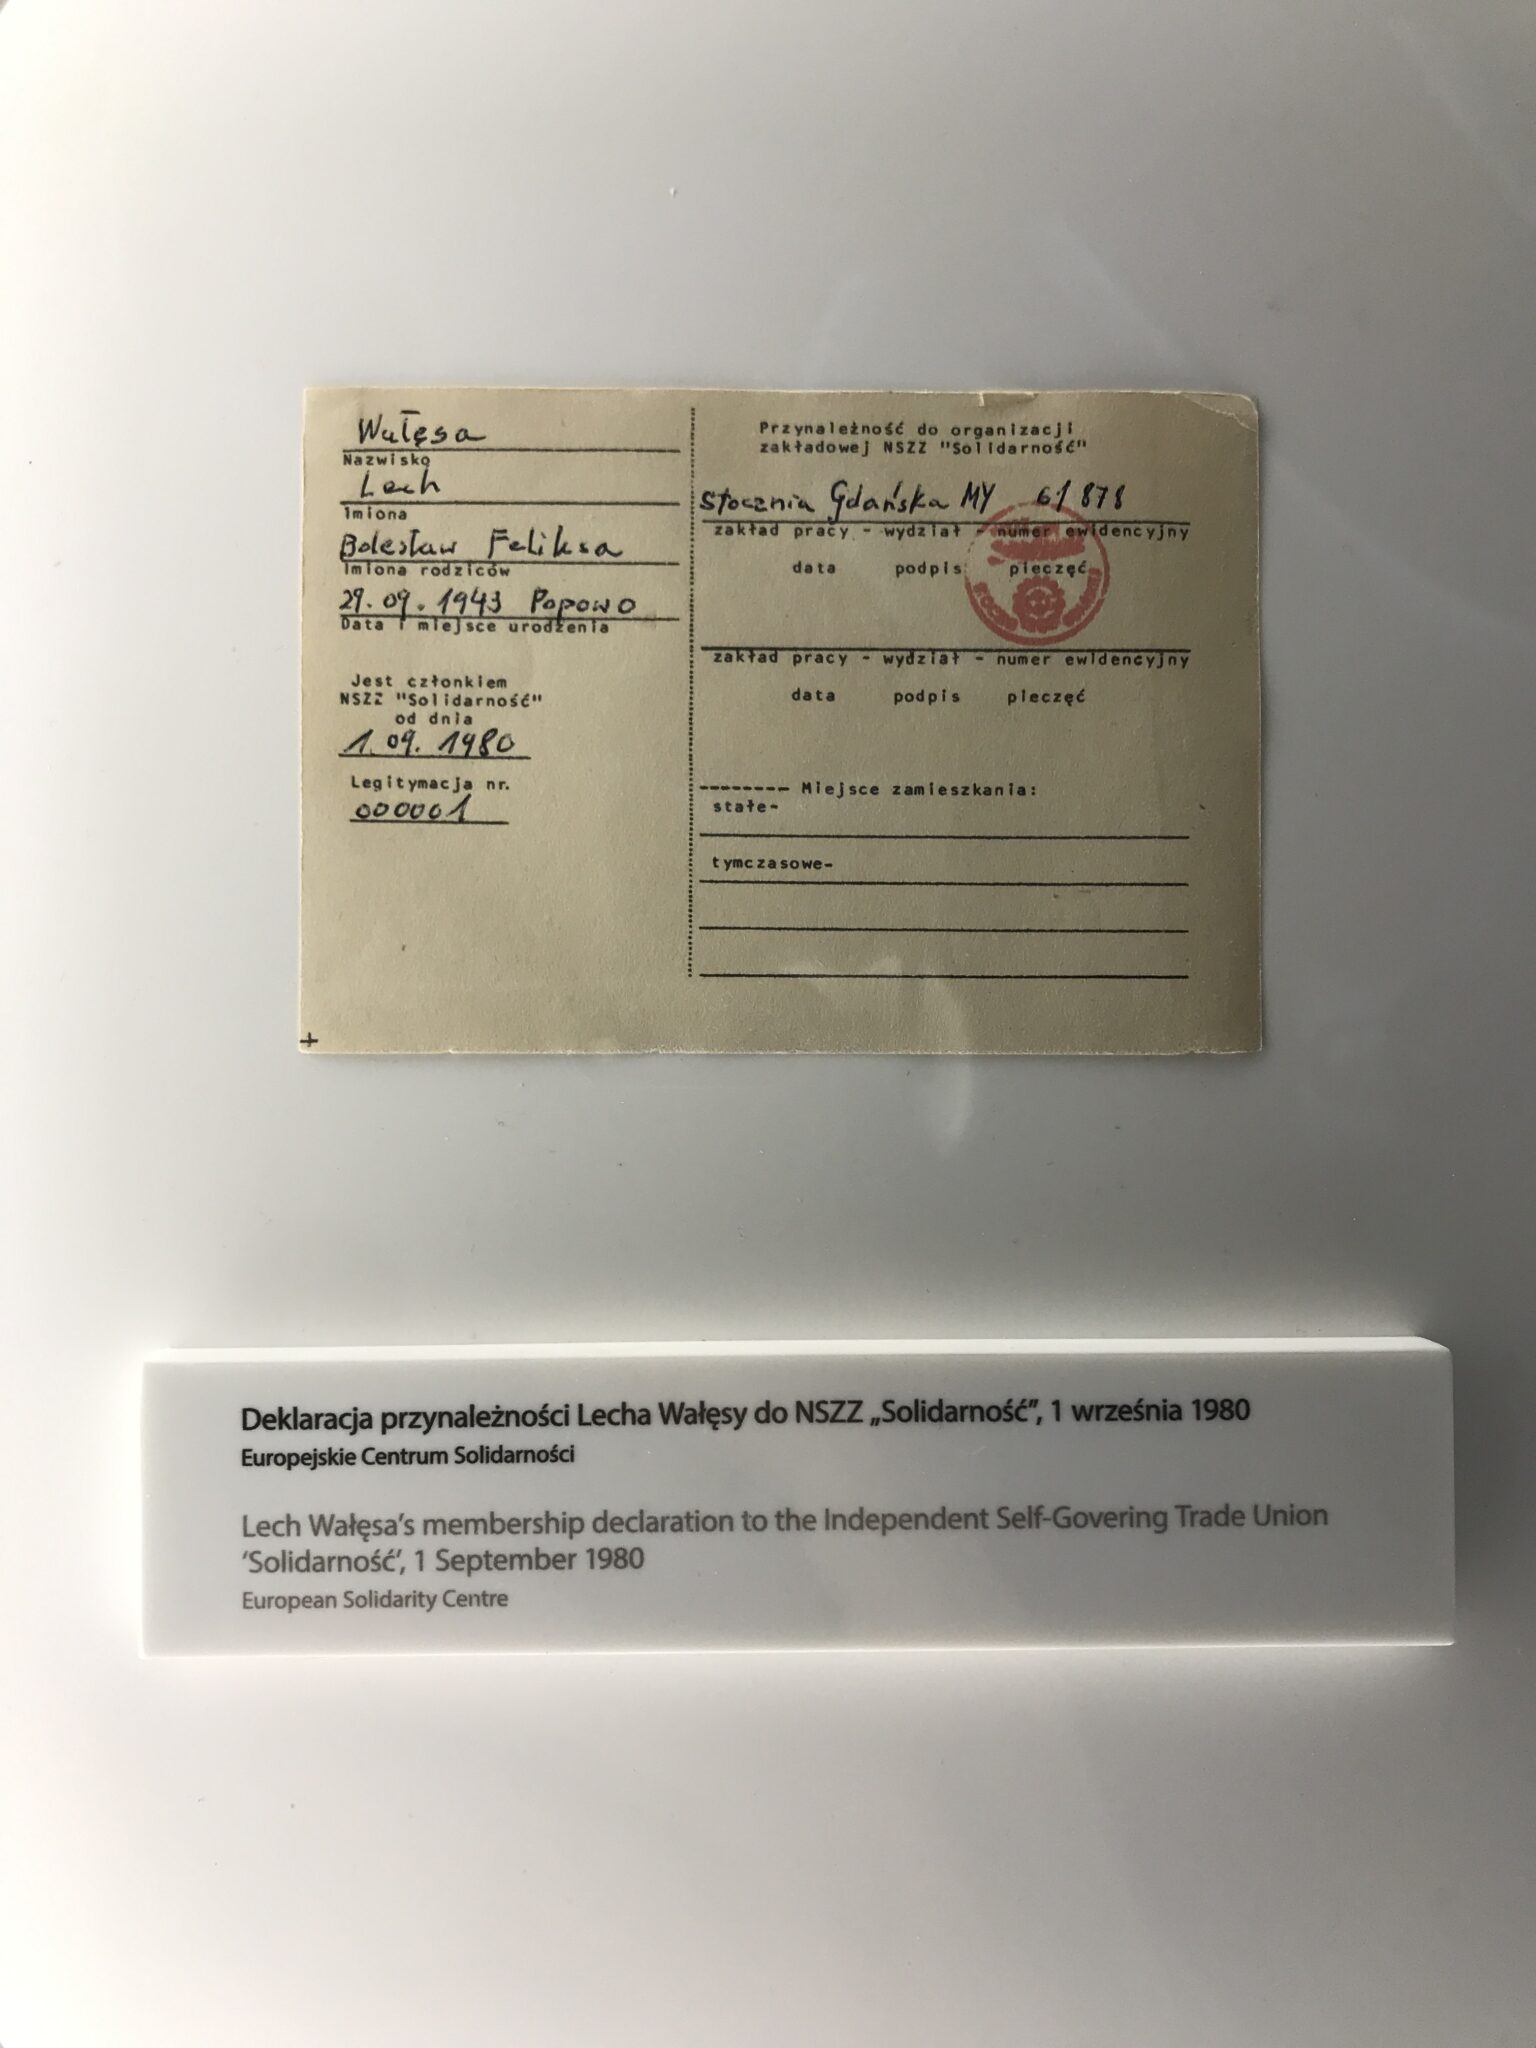 Wałęsa
Nazwisko
Lech
Imiona
Bolesław Feliksa
Imiona rodziców
29.09.1943 Popowo
Data i miejsce urodzenia
Jest członkiem
NSZZ "Solidarność"
od dnia
1.09.1980
Legitymacja nr.
000001
Przynależność do organizacji
zakładowej NSZZ "Solidarność"
Stocznia Gdańska MY 61878
zakład pracy - wydział - numer ewidencyjny
data podpis pieczęć
zakład pracy - wydział - numer ewidencyjny
data podpis pieczęć
-------- Miejsce zamieszkania:
stałe-
tymczasowe-
Deklaracja przynależności Lecha Wałęsy do NSZZ „Solidarność”, 1 września 1980
Europejskie Centrum Solidarności
Lech Wałęsa’s membership declaration to the Independent Self-Govering Trade Union
‘Solidarność’, 1 September 1980
European Solidarity Centre